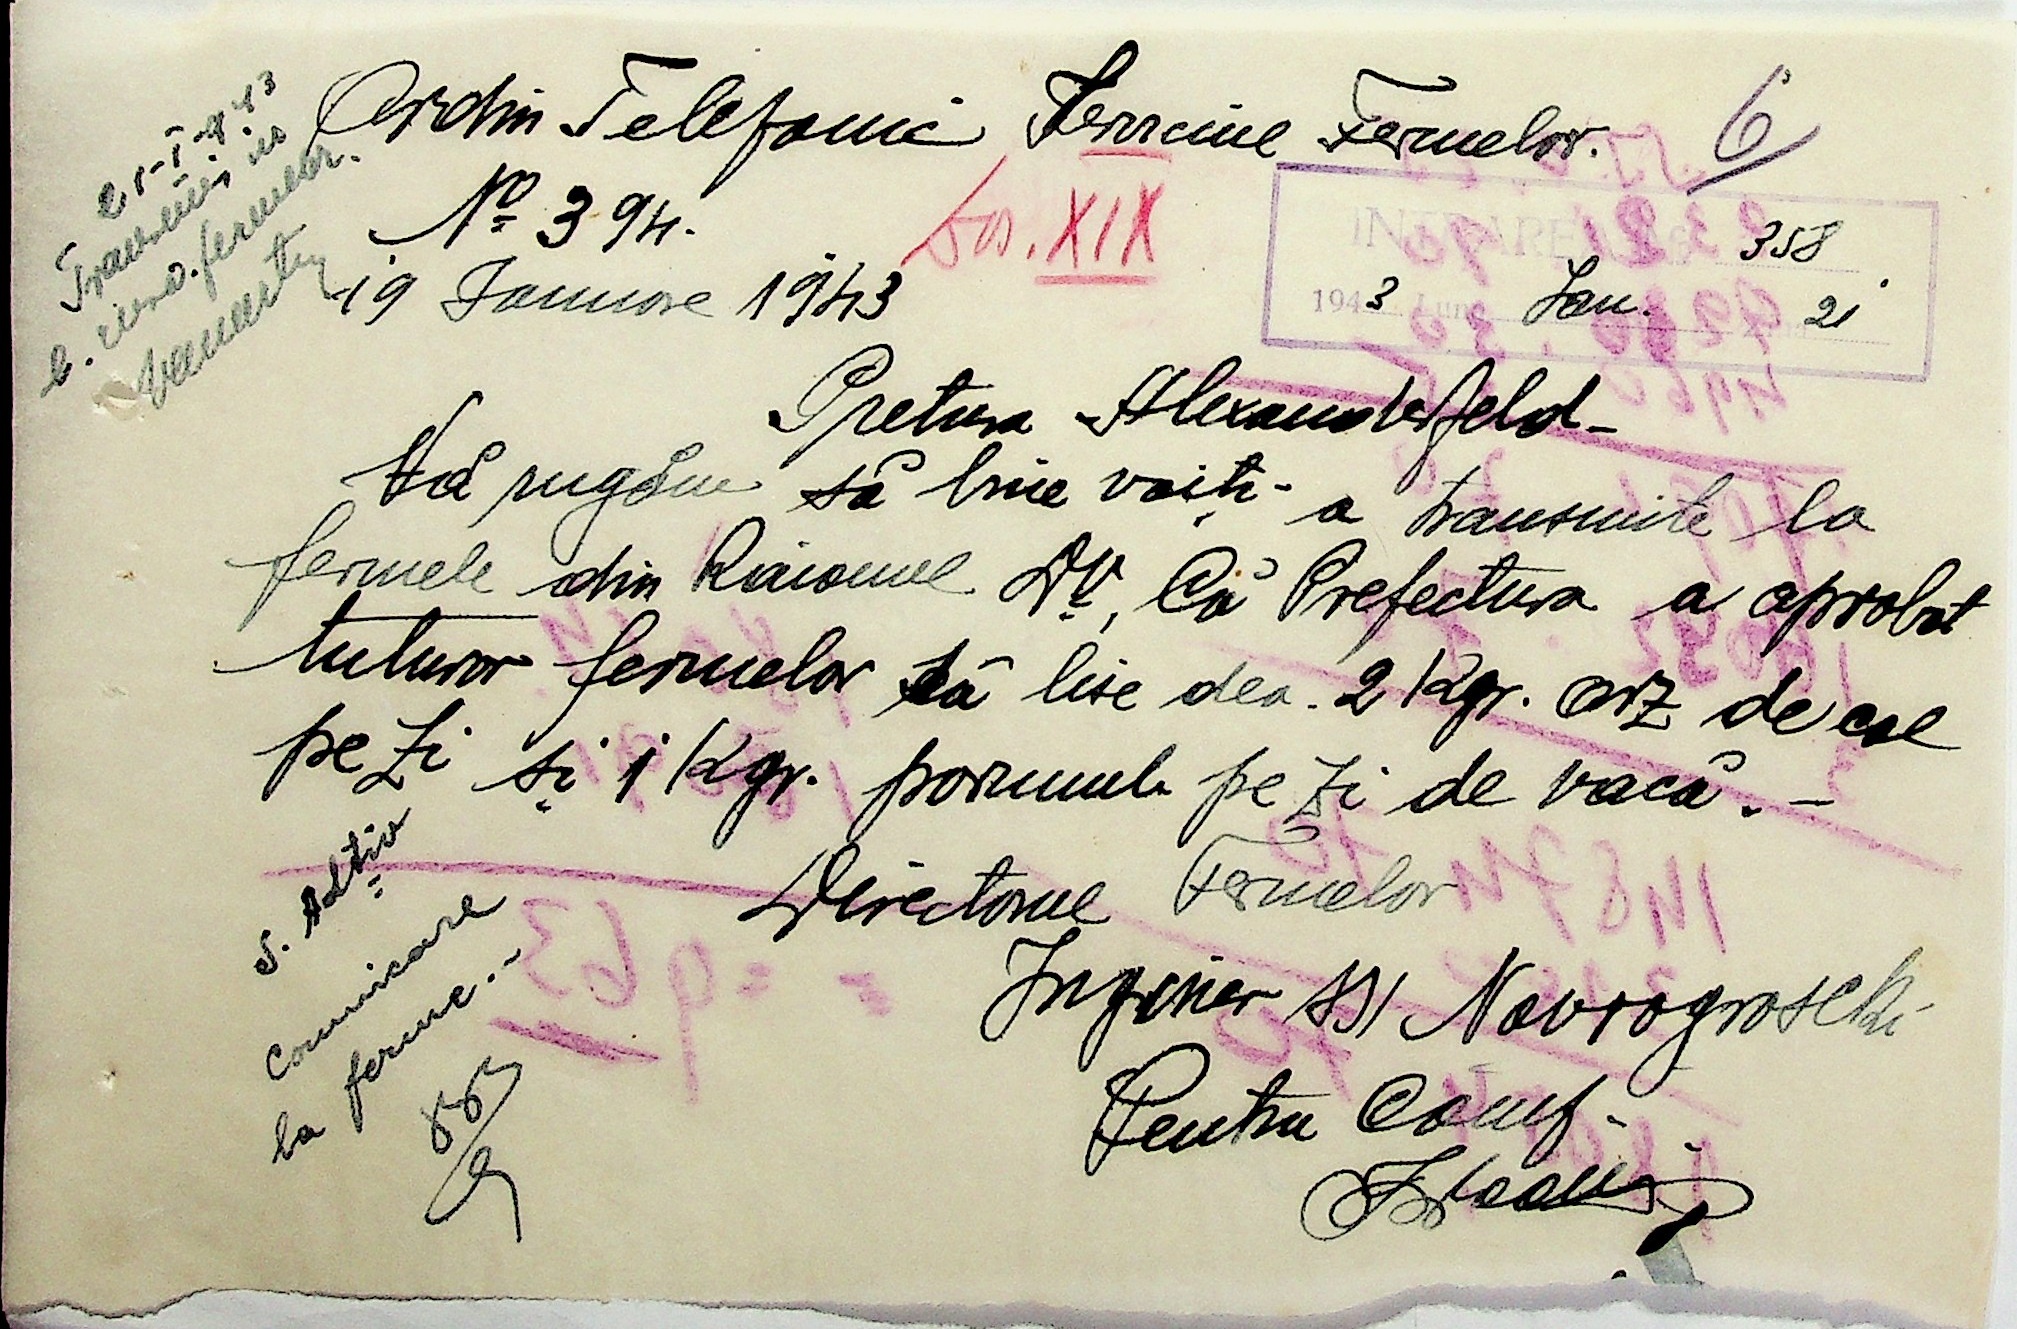 Ordin Telefonic Fermelor.
6
No 394.
Dos. XIX
19 Ianuare 1943
INTRARE No 358
1943 Luna Ian. 21
21-I-943
fermelor.
Pretura Alexanderfeld-
Vă rugăm să bine voiți- a transmite la
fermele din Raionul Dv, Că Prefectura a aprobat
tuturor fermelor să lise dea. 2 Kgr. orz de cal
pe Zi și 1 Kgr. porumb pe Zi de vacă. -
Directorul Fermelor
Inginer ss/ Novrogroschi
Pentru Conf.
S. Adtiv
Comunicare
la ferme.-